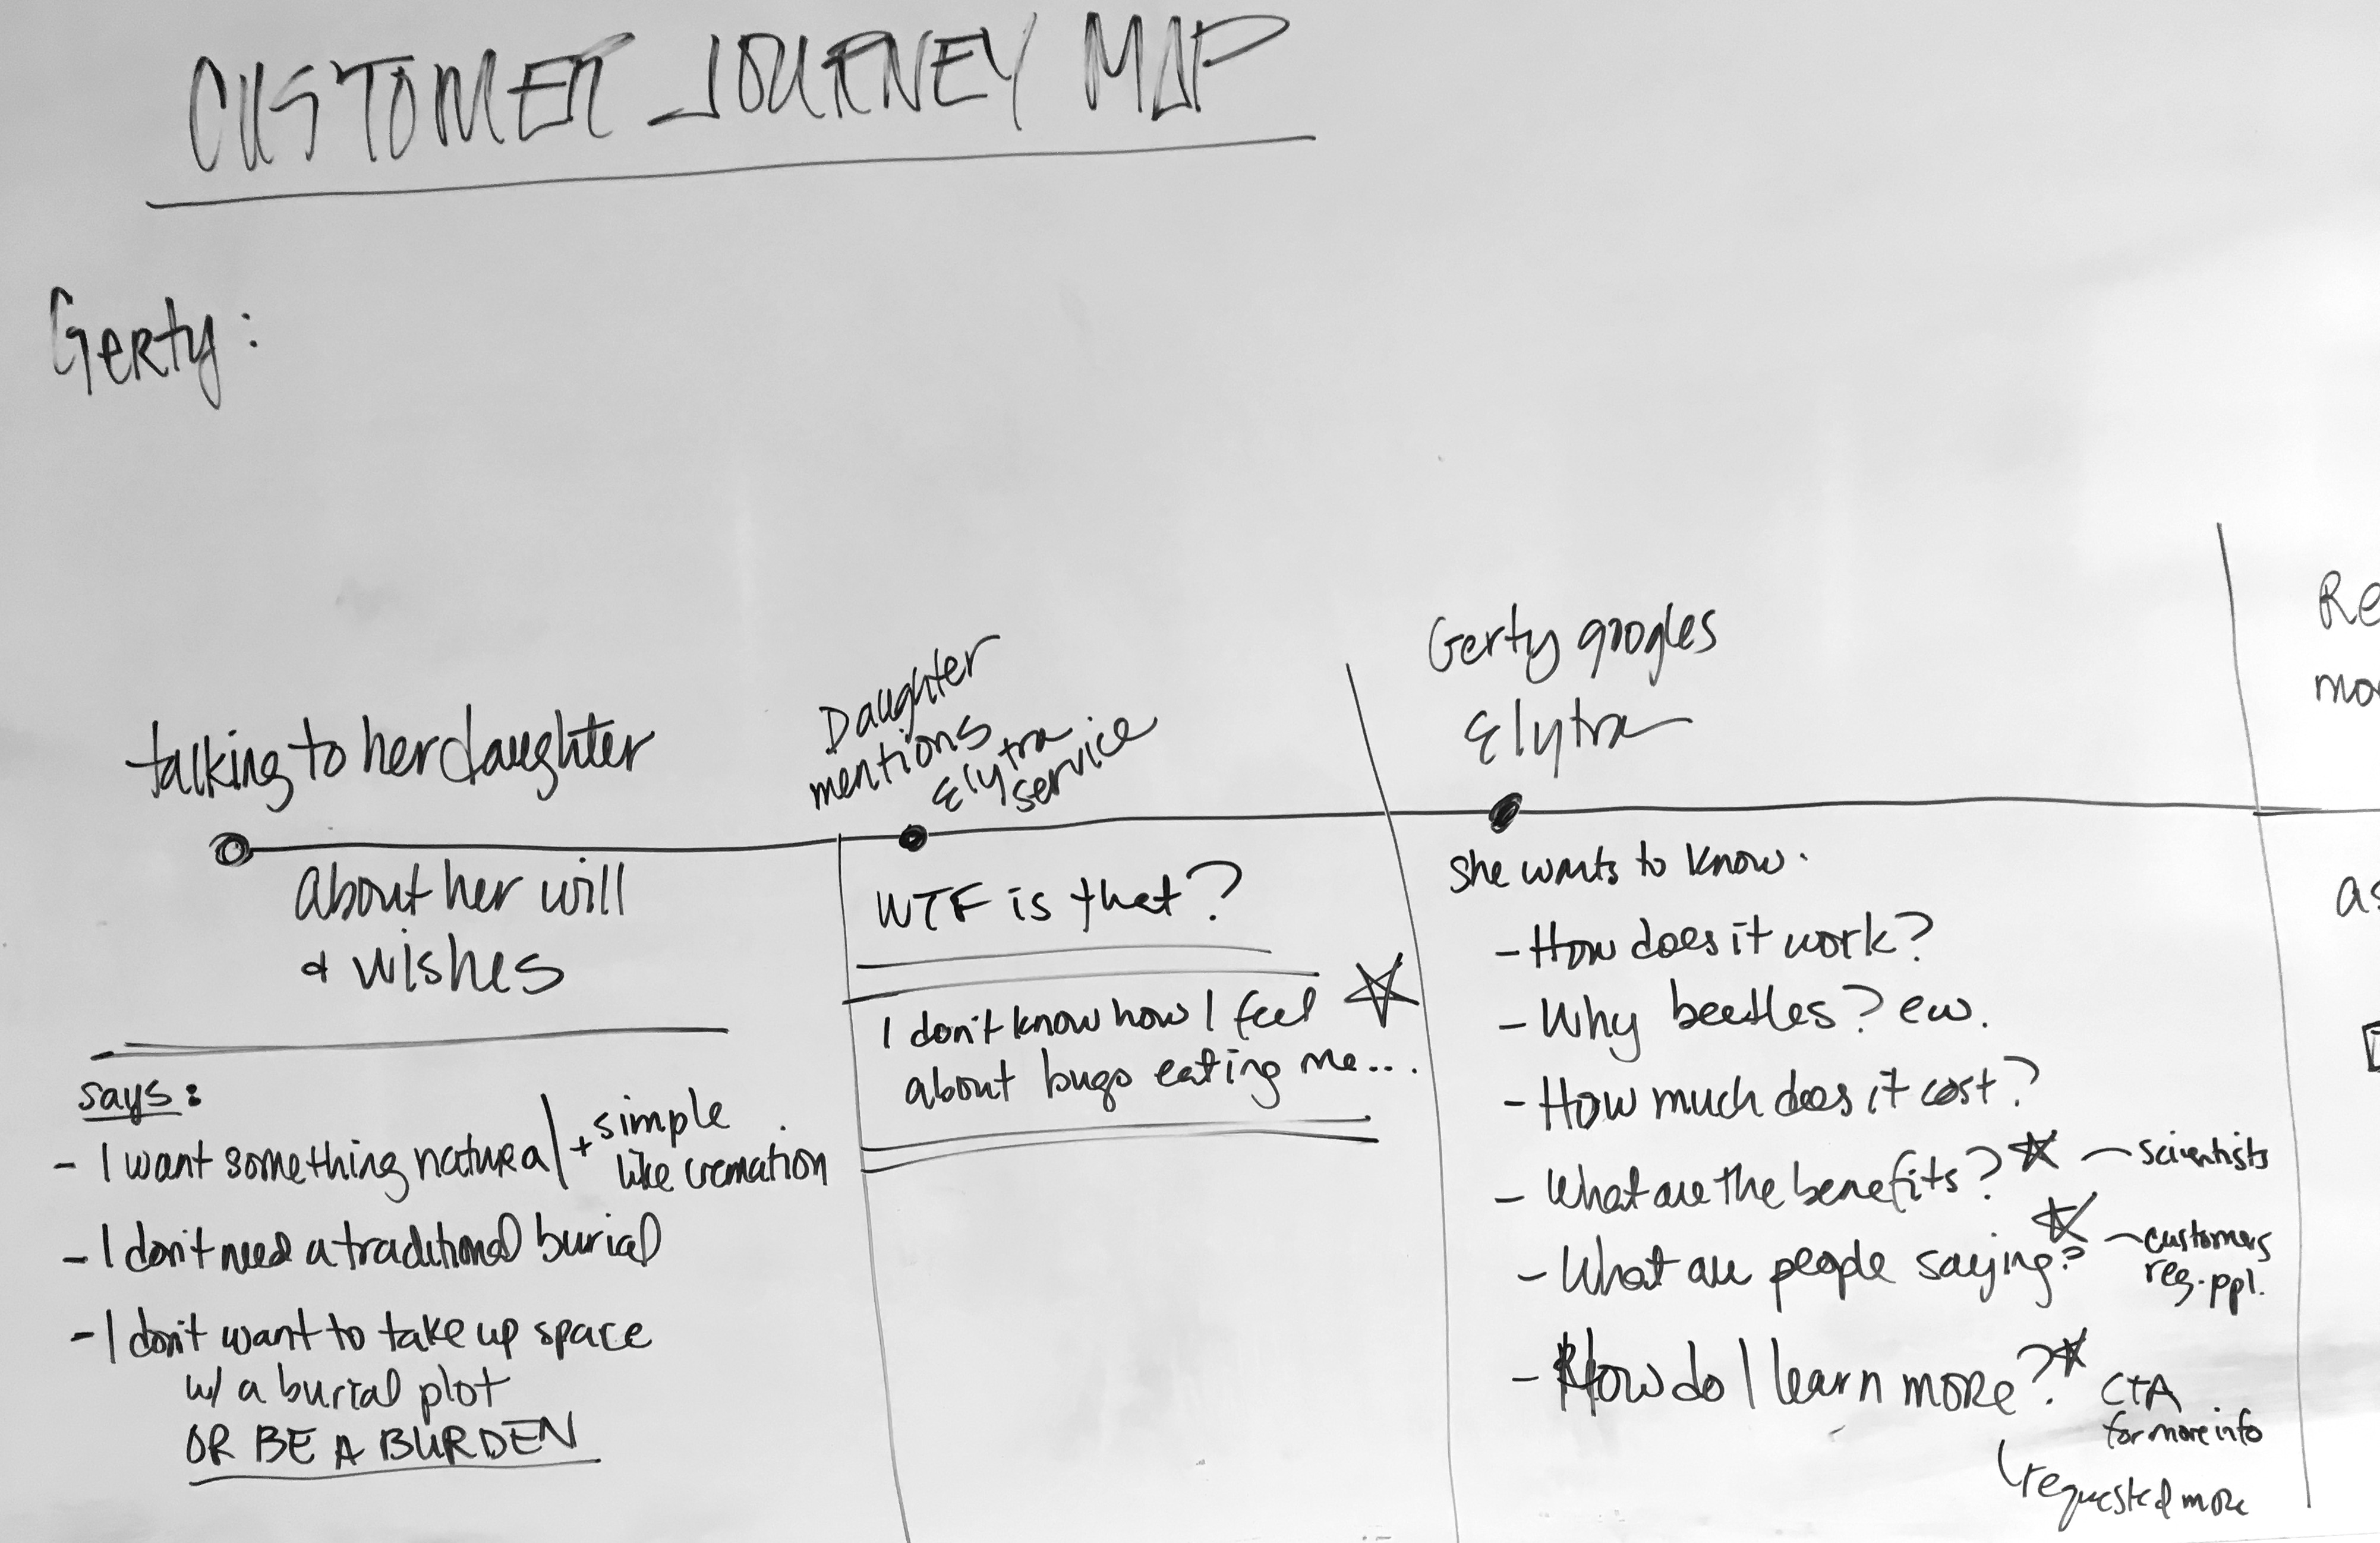 CUSTOMER JOURNEY MAP
Gerty:
talking to her daughter
about her will
& wishes
says:
- I want something natural + simple
like cremation
- I don't need a traditional burial
- I don't want to take up space
w/ a burial plot
OR BE A BURDEN
Daughter
mentions
Elytra
service
WTF is that?
I don't know how I feel
about bugs eating me...
Gerty googles
Elytra
She wants to know.
- How does it work?
- Why beetles? ew.
- How much does it cost?
- What are the benefits? - scientists
- What are people saying? - customers
reg. ppl.
- How do I learn more? CTA
for more info
requested more
Re
mo
as